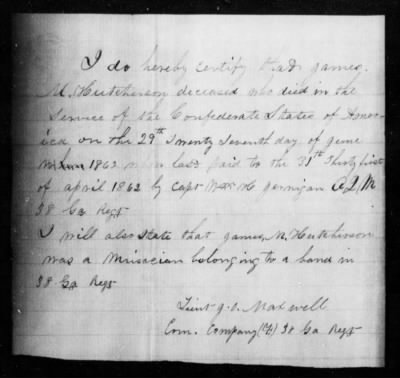 I do hereby certify that james
M. Hutcherson deceased who died in the
Service of the Confederate States of Amer
ica on the 29th Twenty Seventh day of june
1862 was last paid to the 31st Thirty first
of april 1862 by Capt Wm H jernigan A.Q.M
38 Ga Regt
I will also State that james M. Hutcherson
was a Musician belonging to a band in
38 Ga Regt
Lieut g.O. Maxwell
Com. Company 38 Ga Regt